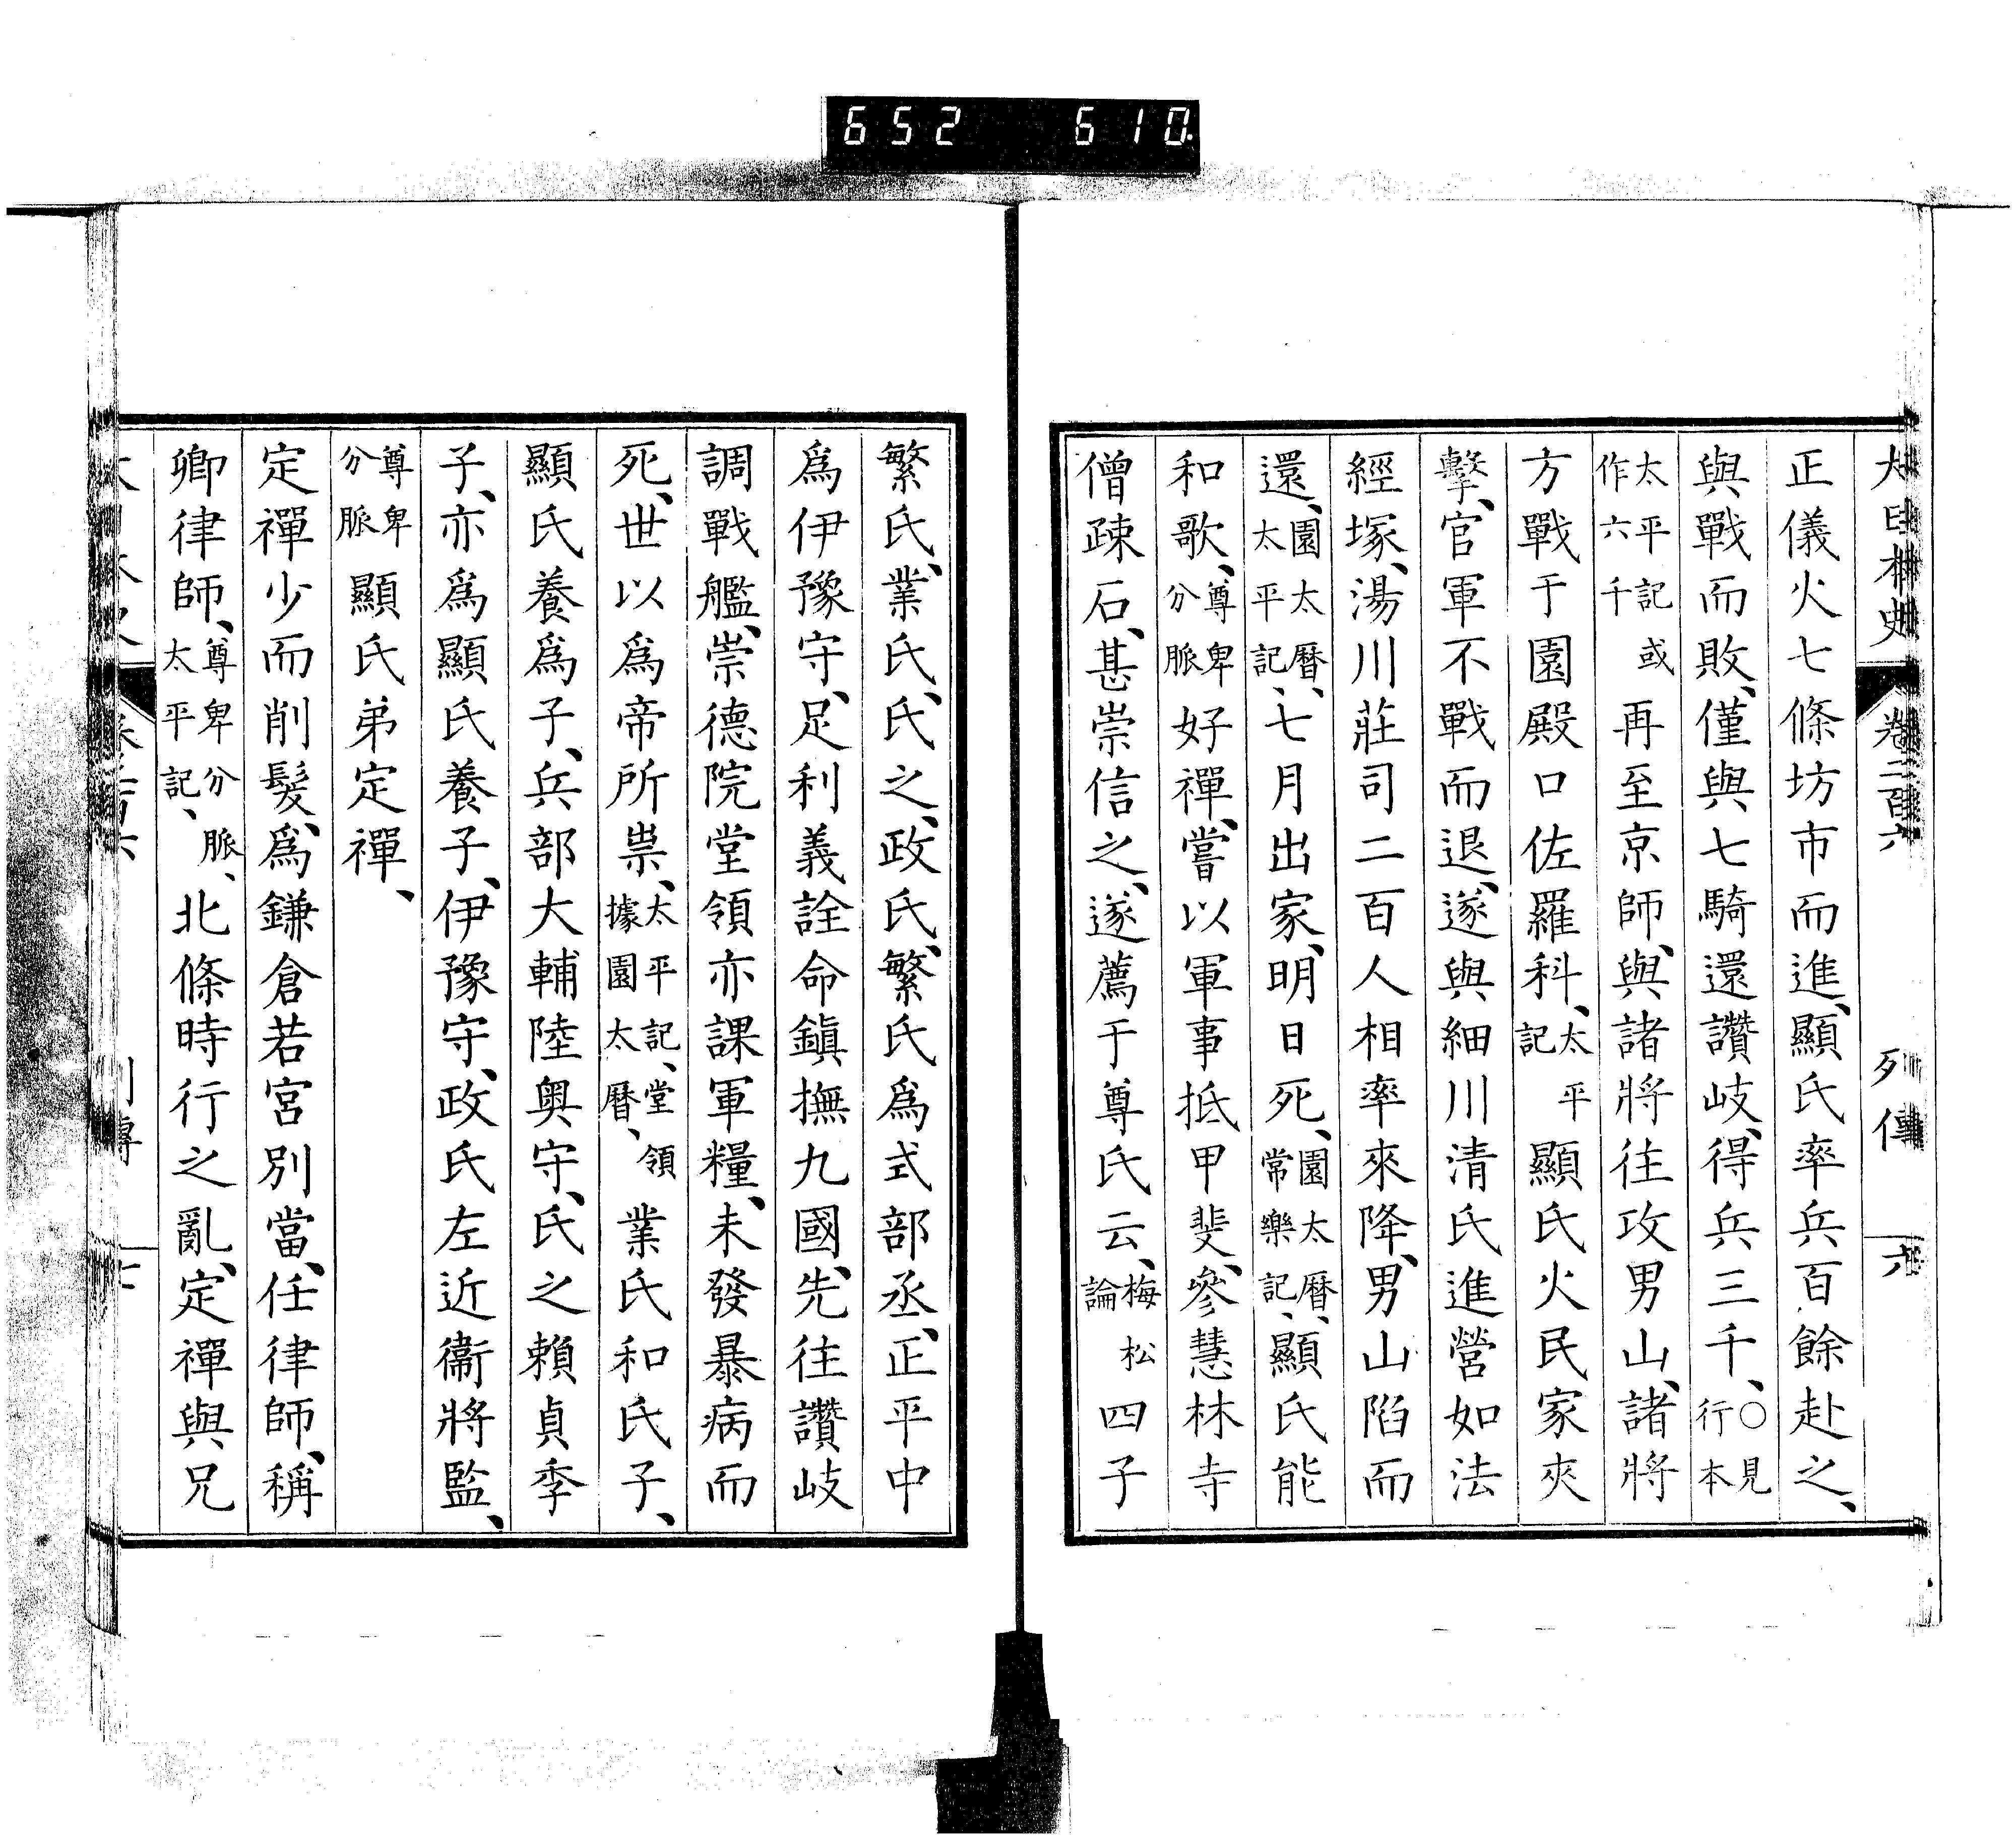 652 610.
大日本史 卷二百六 列傳 六
正儀火七條坊市而進、顯氏率兵百餘赴之、
與戰而敗、僅與七騎還讚岐、得兵三千、○見行本
太平記或作六千再至京師、與諸將往攻男山、諸將
方戰于園殿口佐羅科、太平記顯氏火民家夾
擊、官軍不戰而退、遂與細川清氏進營如法
經塚、湯川莊司二百人相率來降、男山陷而
還、園太曆、太平記、七月出家、明日死、園太曆、常樂記、顯氏能
和歌、尊卑分脈好禪、嘗以軍事抵甲斐、參慧林寺
僧疎石、甚崇信之、遂薦于尊氏云、梅松論四子
繁氏、業氏、氏之、政氏、繁氏爲式部丞、正平中
爲伊豫守、足利義詮命鎭撫九國、先往讚岐
調戰艦、崇德院堂領亦課軍糧、未發暴病而
死、世以爲帝所祟、太平記、堂領據園太曆、業氏和氏子、
顯氏養爲子、兵部大輔陸奧守、氏之賴貞季
子、亦爲顯氏養子、伊豫守、政氏左近衞將監、
尊卑分脈顯氏弟定禪、
定禪少而削髮、爲鎌倉若宮別當、任律師、稱
卿律師、尊卑分脈、太平記、北條時行之亂、定禪與兄